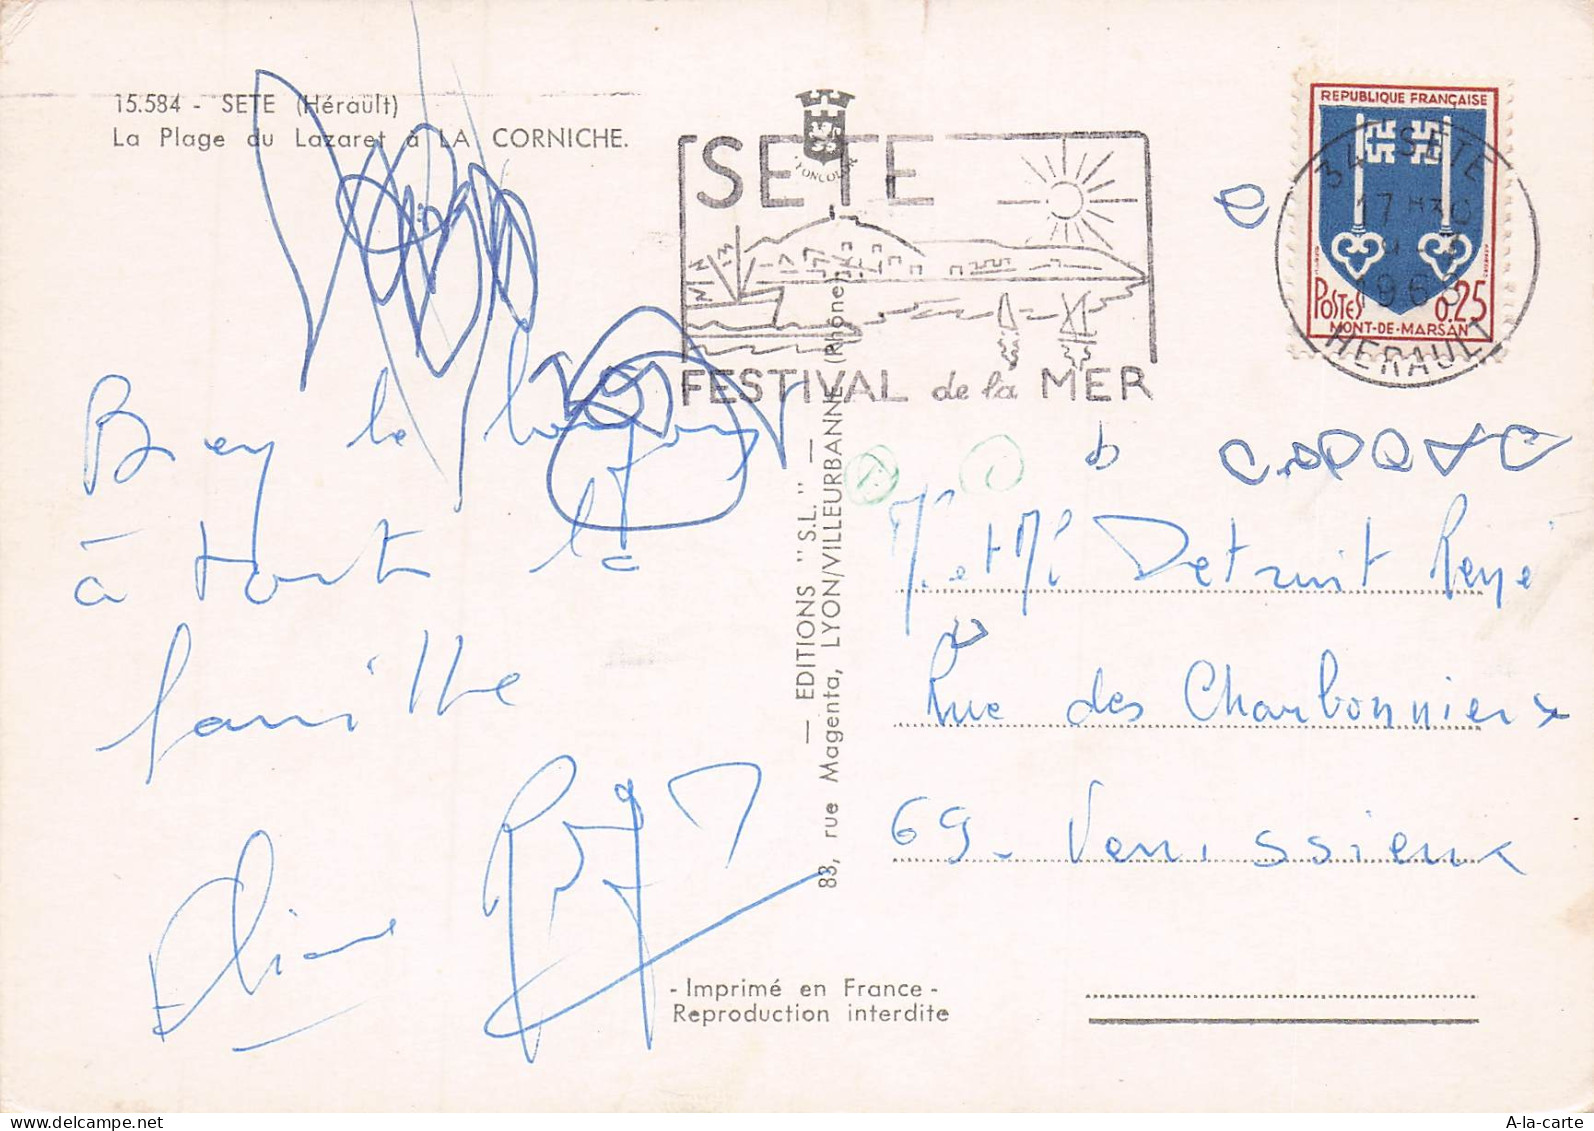 15.584 - SETE (Hérault)
La Plage du Lazaret à LA CORNICHE.
SETE
FESTIVAL de la MER
REPUBLIQUE FRANÇAISE
POSTES 0.25
MONT-DE-MARSAN
34 SETE
17 H30
HERAULT
à toute la
famille
Eliane
— EDITIONS "S.L." —
83, rue Magenta, LYON/VILLEURBANNE (Rhône)
Detruit René
Rue des Charbonnierx
69 - Venissieux
- Imprimé en France -
Reproduction interdite
A-la-carte